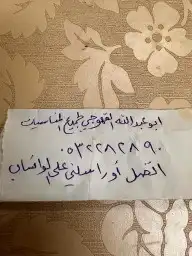 ابو عبدالله القهوجي لجميع المناسبات
٠٥٣٢٢٨٢٨٩٠
اتصل او راسلني على الواتساب